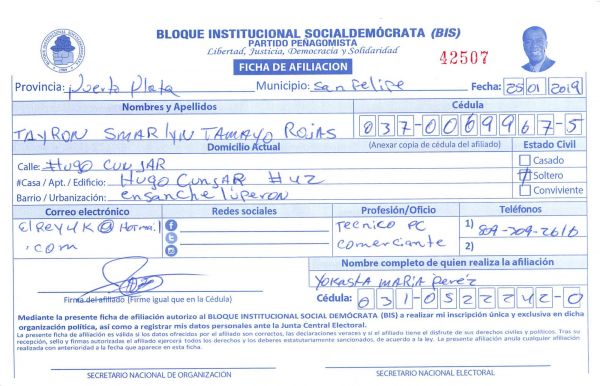 BLOQUE INSTITUCIONAL SOCIALDEMÓCRATA (BIS)
PARTIDO PEÑAGOMISTA
Libertad, Justicia, Democracia y Solidaridad
FICHA DE AFILIACION
42507
Provincia: Puerto Plata Municipio: San Felipe Fecha: 25 01 2019
Nombres y Apellidos Cédula
TAYRON SMARLYN TAMAYO ROJAS 037-0069967-5
Domicilio Actual (Anexar copia de cédula del afiliado) Estado Civil
Calle: HUGO CUNJAR Casado
#Casa / Apt. / Edificio: HUGO CUNSAR #42 Soltero
Barrio / Urbanización: ensanche luperon Conviviente
Correo electrónico Redes sociales Profesión/Oficio Teléfonos
ElRey4K@Hotmail Tecnico PC 1) 809-209-2616
.com comerciante 2)
Nombre completo de quien realiza la afiliación
Yokasta Maria Perez
Firma del afiliado (Firme igual que en la Cédula) Cédula: 031-0522242-0
Mediante la presente ficha de afiliación autorizo al BLOQUE INSTITUCIONAL SOCIAL DEMÓCRATA (BIS) a realizar mi inscripción única y exclusiva en dicha
organización política, así como a registrar mis datos personales ante la Junta Central Electoral.
La presente ficha de afiliación es válida si los datos ofrecidos por el afiliado son correctos, las declaraciones veraces y si el afiliado tiene el disfrute de sus derechos civiles y políticos. Tras su
recepción, sello y firmas autorizadas el afiliado ejercerá todos los derechos y los deberes estatutariamente sancionados, de acuerdo a la ley. La presente afiliación anula cualquier afiliación
realizada con anterioridad a la fecha que aparece en esta ficha.
SECRETARIO NACIONAL DE ORGANIZACIÓN SECRETARIO NACIONAL ELECTORAL